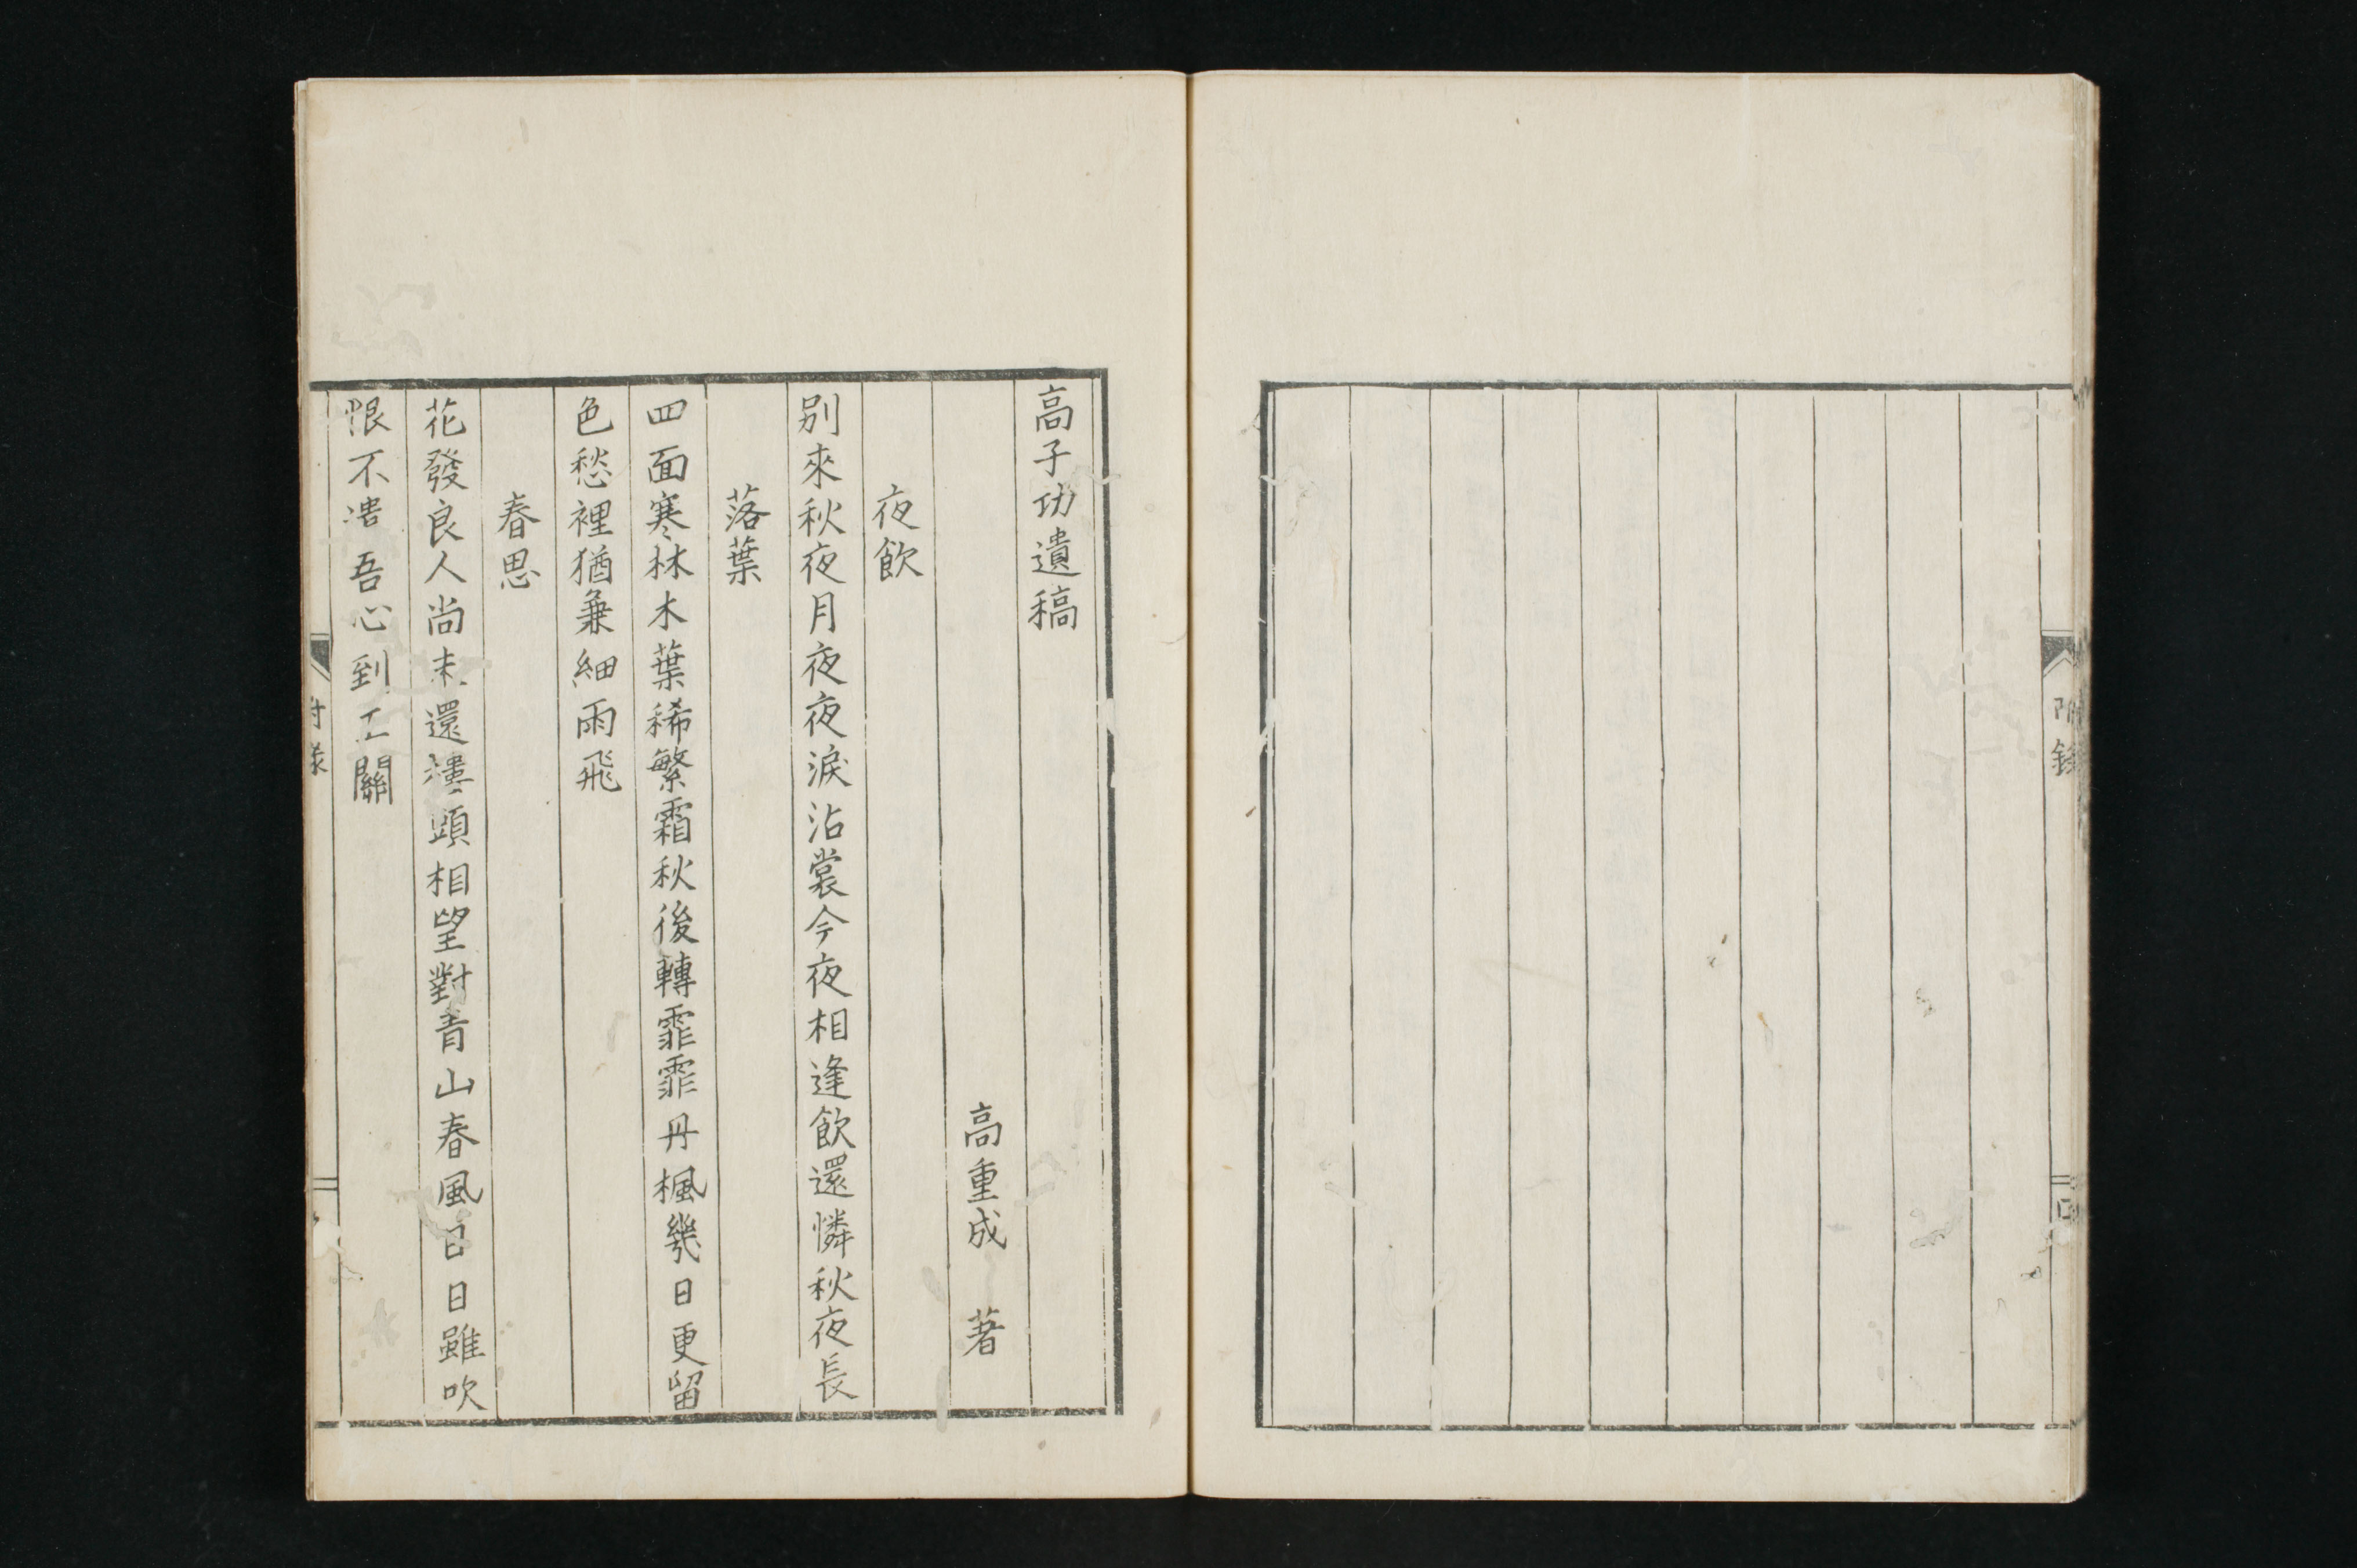 附錄
四
高子功遺稿
高重成 著
夜飲
別來秋夜月夜夜淚沾裳今夜相逢飲還憐秋夜長
落葉
四面寒林木葉稀繁霜秋後轉霏霏丹楓幾日更留
色愁裡猶兼細雨飛
春思
花發良人尚未還樓頭相望對青山春風日日雖吹
恨不吾心到玉關
附錄